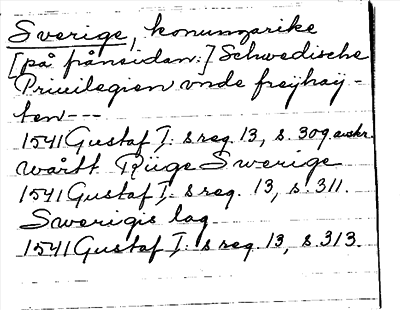 Sverige, konungarike
[på frånsidan:] Schwedische
Priuilegien vnde freÿhaÿ-
ten---
1541 Gustaf I: s reg. 13, s. 309. avskr
wårtt Rijge Swerige
1541 Gustaf I: s reg. 13, s. 311.
Swerigis lag
1541 Gustaf I: s reg. 13, s. 313.